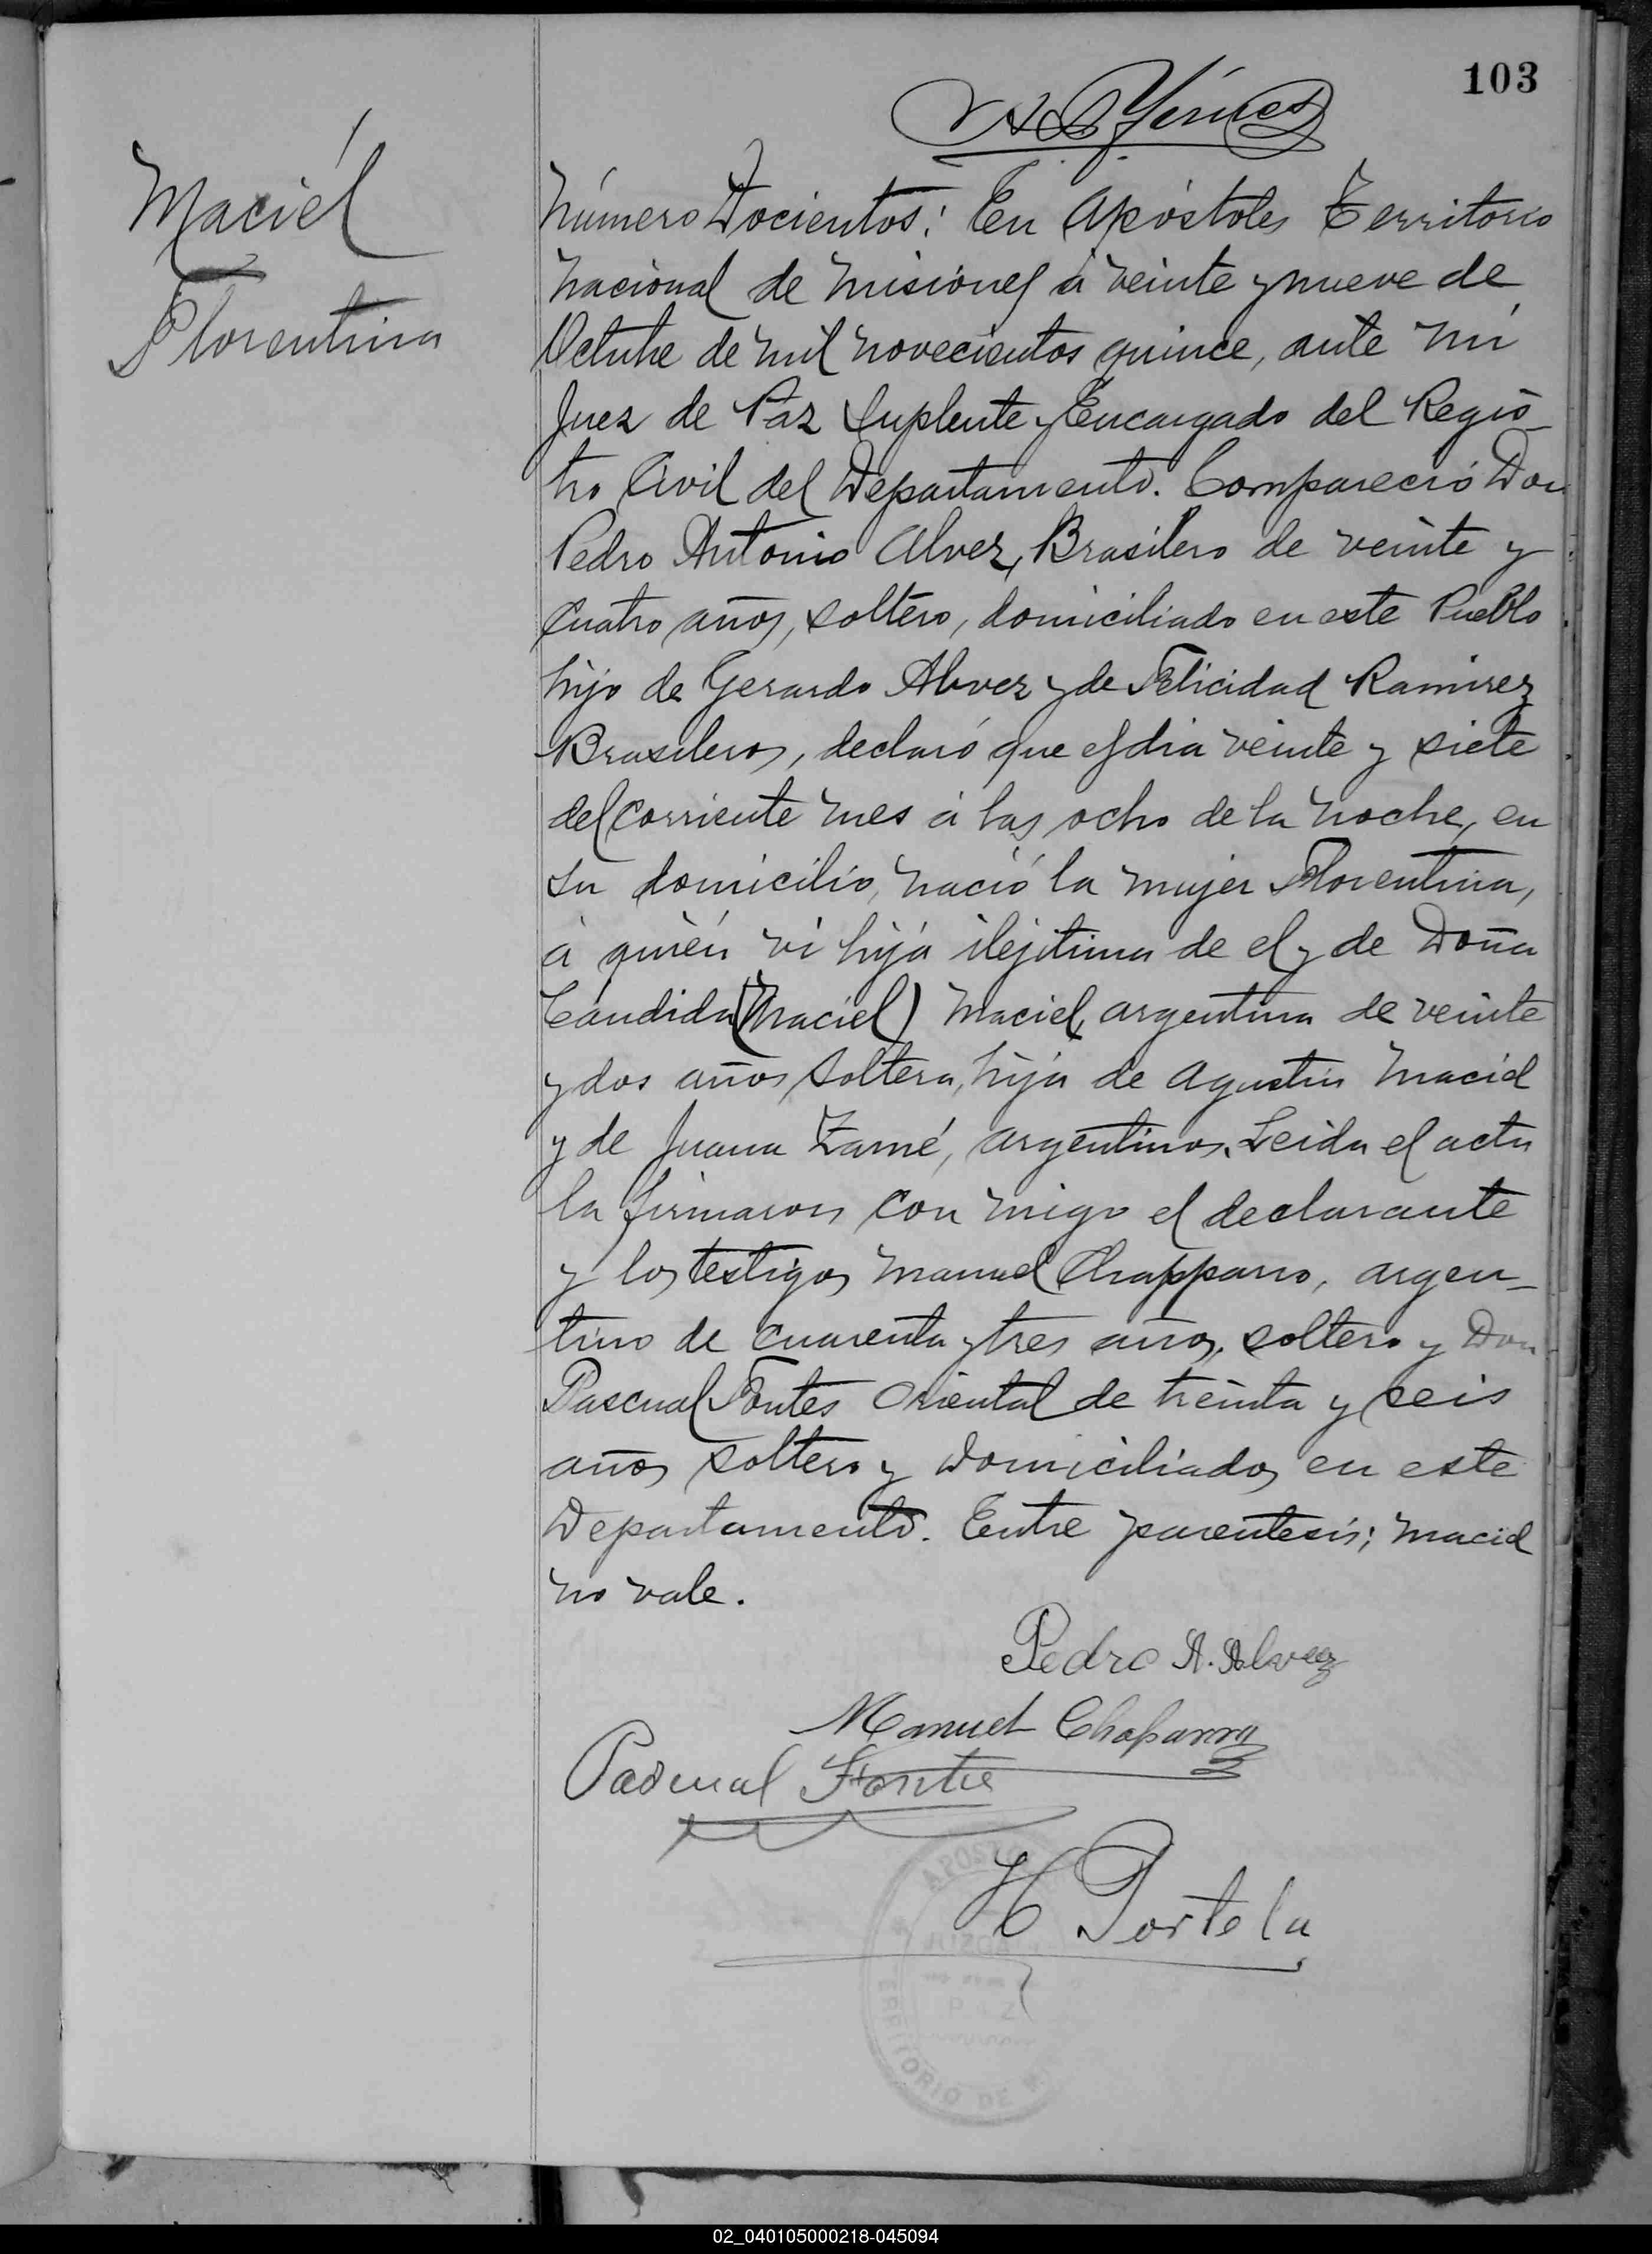 103
Maciél
Florentina
Número Docientos: En Apóstoles Territorio
Nacional de Misiones á veinte y nueve de
Octubre de mil novecientos quince, ante mí
Juez de Paz Suplente y Encargado del Regis-
tro Civil del Departamento. Compareció Don
Pedro Antonio Alvez, Brasilero de veinte y
cuatro años, soltero, domiciliado en este Pueblo
hijo de Gerardo Alvez y de Felicidad Ramirez
Brasileros, declaró que el dia veinte y siete
del corriente mes á las ocho de la noche, en
su domicilio, nació la mujer Florentina,
á quién vi hija ilejitima de el y de Doña
Cándida (Maciel) Maciel, argentina de veinte
y dos años soltera, hija de Agustin Maciel
y de Juana Zamé, argentinos. Leida el acta
la firmaron con migo el declarante
y los testigos Manuel Chapparro, argen-
tino de cuarenta y tres años, soltero y Don
Pascual Fontes Oriental de treinta y seis
años soltero y domiciliados en este
Departamento. Entre parentesis; Maciel
no vale.
Pedro A. Alvez
Manuel Chaparro
Pascual Fontes
H Portela
APOSTO
JUZG
PAZ
ERRITORIO DE M
02_040105000218-045094